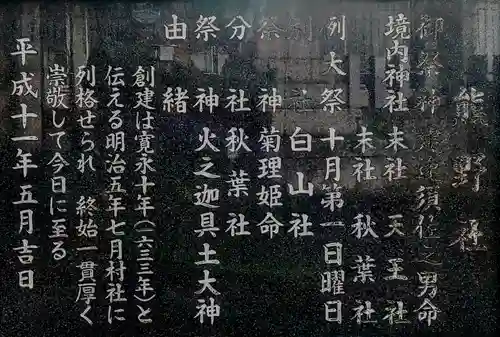 熊野社
御祭神 建速須佐之男命
境内神社 末社 天王社
末社 秋葉社
列大祭 十月第一日曜日
別社 白山社
祭神 菊理姫命
分社 秋葉社
祭神 火之迦具土大神
由緒
創建は寛永十年(一六三三年)と
伝える明治五年七月村社に
列格せられ 終始一貫厚く
崇敬して今日に至る
平成十一年五月吉日